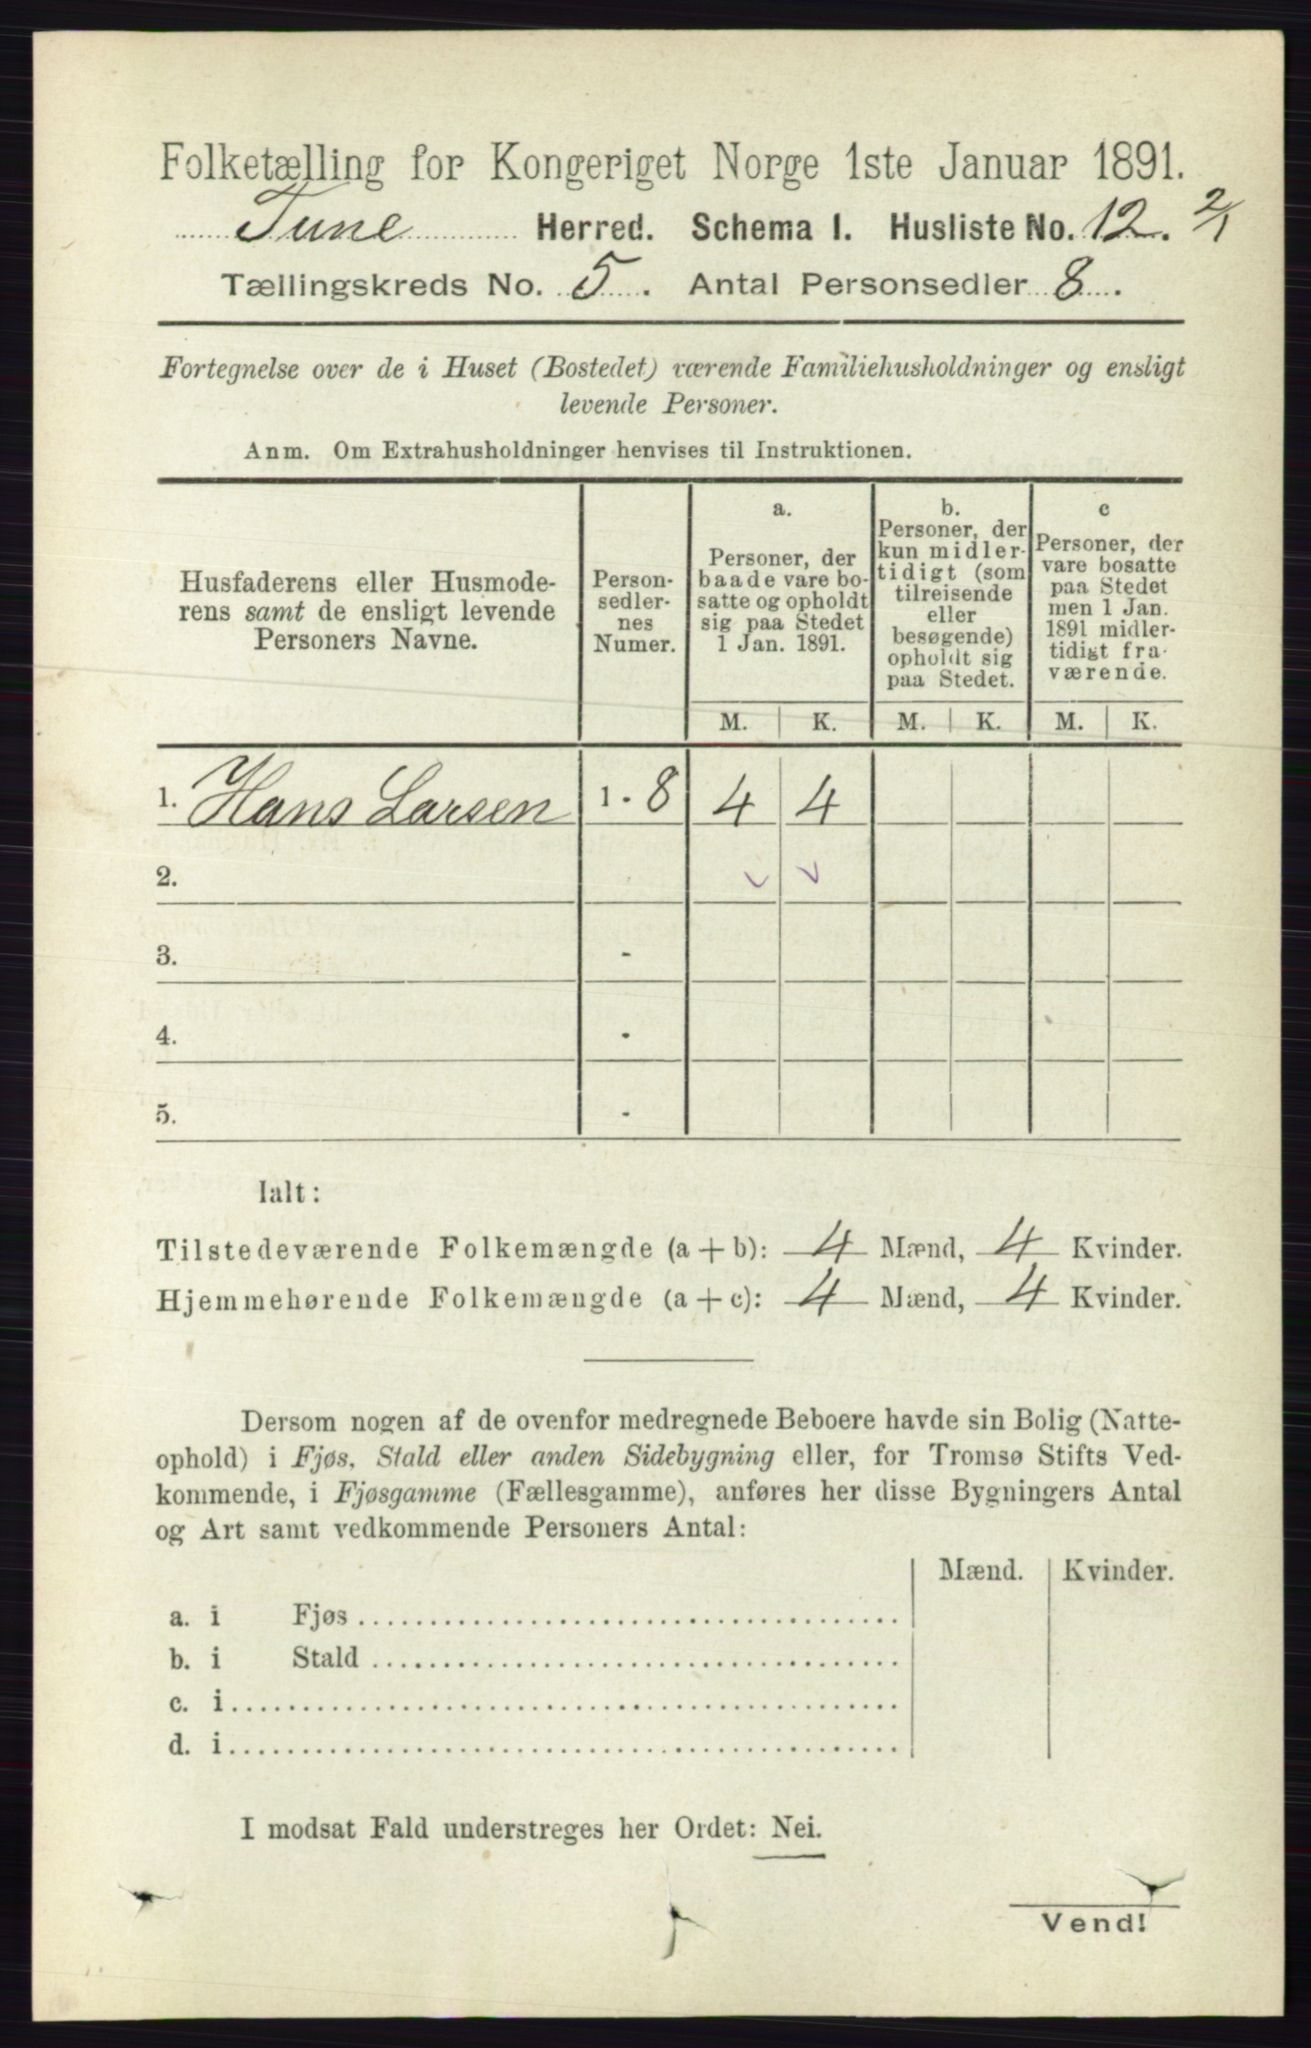 Folketælling for Kongeriget Norge 1ste Januar 1891.
Tune Herred. Schema I. Husliste No. 12. 2/1
Tællingskreds No. 5. Antal Personsedler 8.
Fortegnelse over de i Huset (Bostedet) værende Familiehusholdninger og ensligt
levende Personer.
Anm. Om Extrahusholdninger henvises til Instruktionen.
Husfaderens eller Husmode-
rens samt de ensligt levende
Personers Navne.
Person-
sedler-
nes
Numer.
a.
Personer, der
baade vare bo-
satte og opholdt
sig paa Stedet
1 Jan. 1891.
b.
Personer, der
kun midler-
tidigt (som
tilreisende
eller
besøgende)
opholdt sig
paa Stedet.
c
Personer, der
vare bosatte
paa Stedet
men 1 Jan.
1891 midler-
tidigt fra-
værende.
M. K. M. K. M. K.
1. Hans Larsen 1 - 8 4 4
2.
3. -
4. -
5. -
Ialt:
Tilstedeværende Folkemængde (a + b): 4 Mænd, 4 Kvinder.
Hjemmehørende Folkemængde (a + c): 4 Mænd, 4 Kvinder.
Dersom nogen af de ovenfor medregnede Beboere havde sin Bolig (Natte-
ophold) i Fjøs, Stald eller anden Sidebygning eller, for Tromsø Stifts Ved-
kommende, i Fjøsgamme (Fællesgamme), anføres her disse Bygningers Antal
og Art samt vedkommende Personers Antal:
Mænd. Kvinder.
a. i Fjøs
b. i Stald
c. i
d. i
I modsat Fald understreges her Ordet: Nei.
Vend!